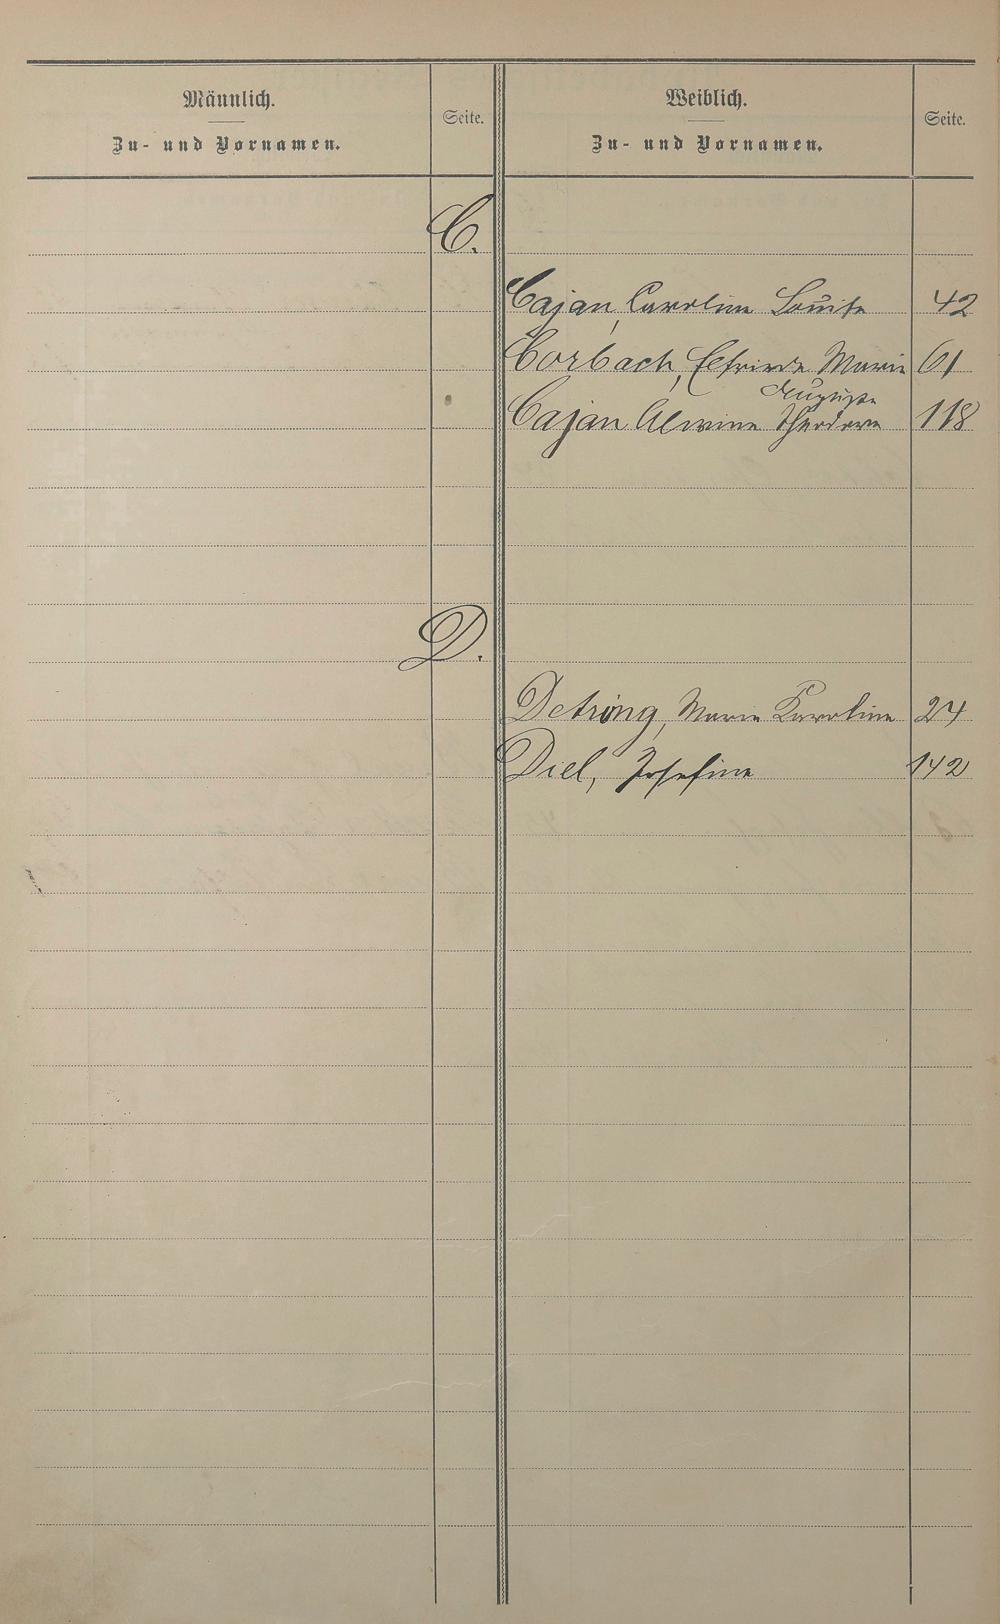 Männlich.
Zu- und Vornamen.
Seite.
Weiblich.
Zu- und Vornamen.
Seite.
C.
Cajan, Caroline Louise 42
Corbach, Elfriede Marie 61
Auguste
Cajan Alwine Theodore 118
D.
Detring, Marie Karoline 24
Diel, Josefine 142